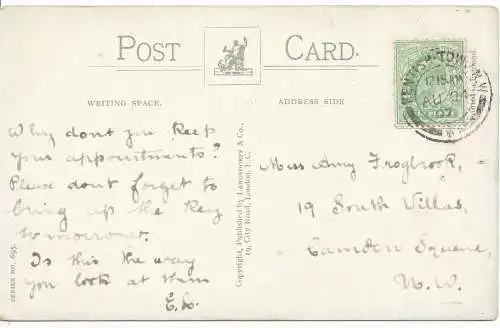 POST CARD.
WRITING SPACE.
ADDRESS SIDE
Why dont you keep
your appointments?
Please dont forget to
bring up the key
tomorrow.
Is this the way
you look at them
E.L.
SERIES NO. 695.
Copyright, Published by
19, City Road, London, E.C.
Miss Amy Frogbrook,
19 South Villas,
Camden Square,
N.W.
KENTISH-TOWN N.W
12.15 AM
AU
07
Printed in England.